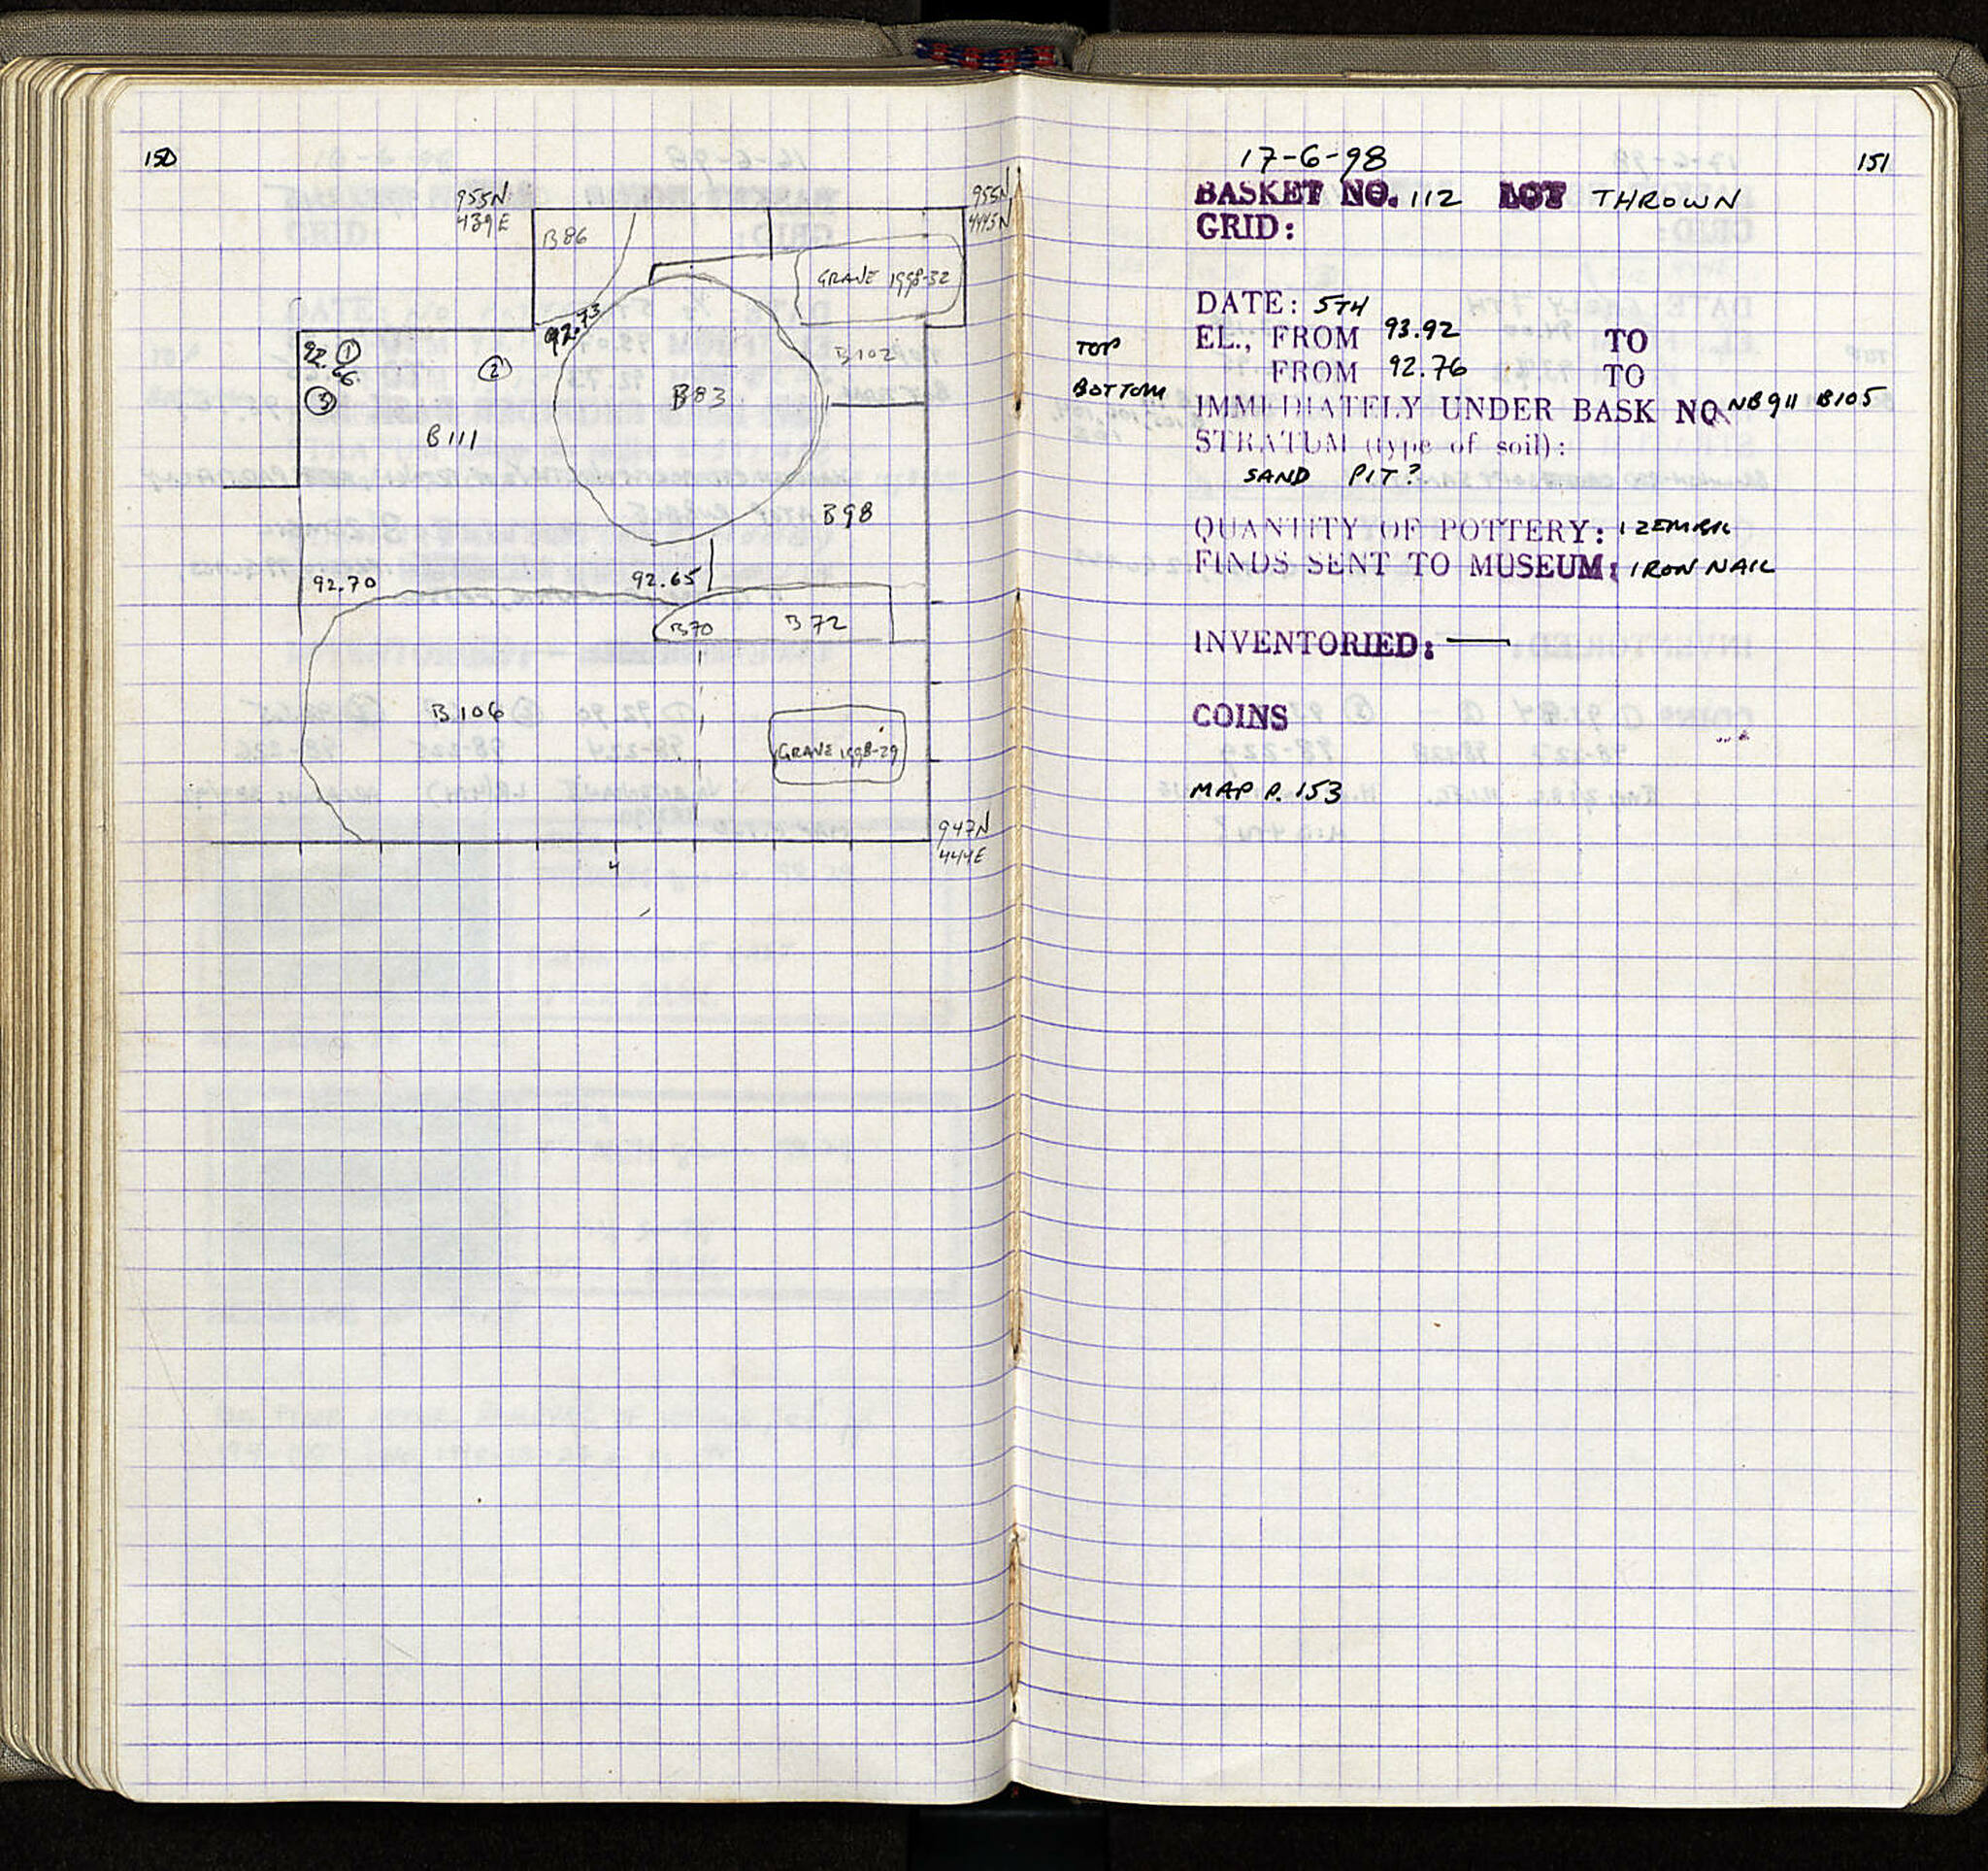 150
955N
439E
955N
444.5N
B86
GRAVE 1998-32
92.73
92.66
1
2
3
B102
B83
B111
B98
92.70
92.65
B70
B72
B106
GRAVE 1998-29
947N
444E
4
151
17-6-98
BASKET NO. 112 LOT THROWN
GRID:
DATE: 5TH
TOP EL., FROM 93.92 TO
BOTTOM FROM 92.76 TO
IMMEDIATELY UNDER BASK NO NB911 B105
STRATUM (type of soil):
SAND PIT?
QUANTITY OF POTTERY: 1 ZEMBIL
FINDS SENT TO MUSEUM: IRON NAIL
INVENTORIED: —
COINS
MAP P. 153